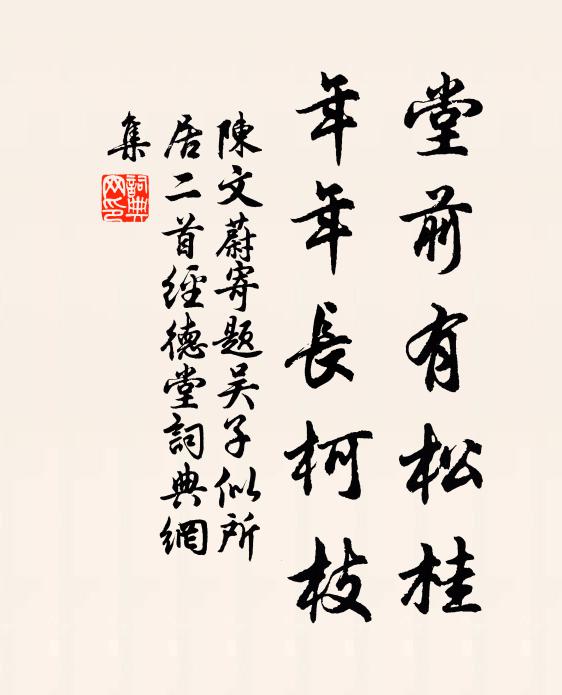 堂前有松桂
年年長柯枝
陳文蔚寄題吴子似所
居二首經德堂詞典網
集
詞典
网印